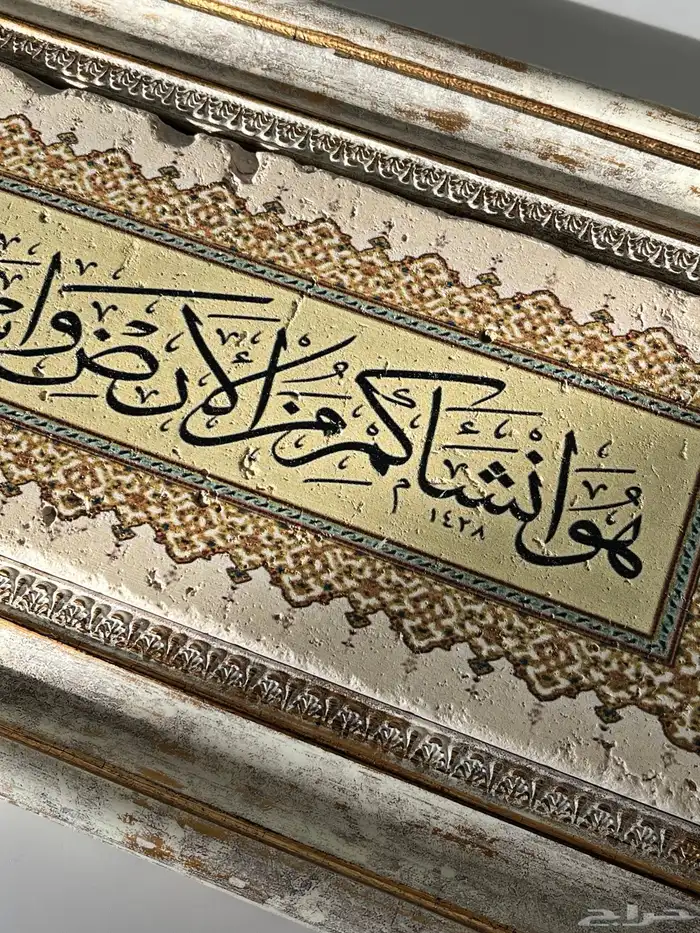 هُوَ أَنْشَأَكُمْ مِنَ الْأَرْضِ وَا
١٤٢٨
حراج